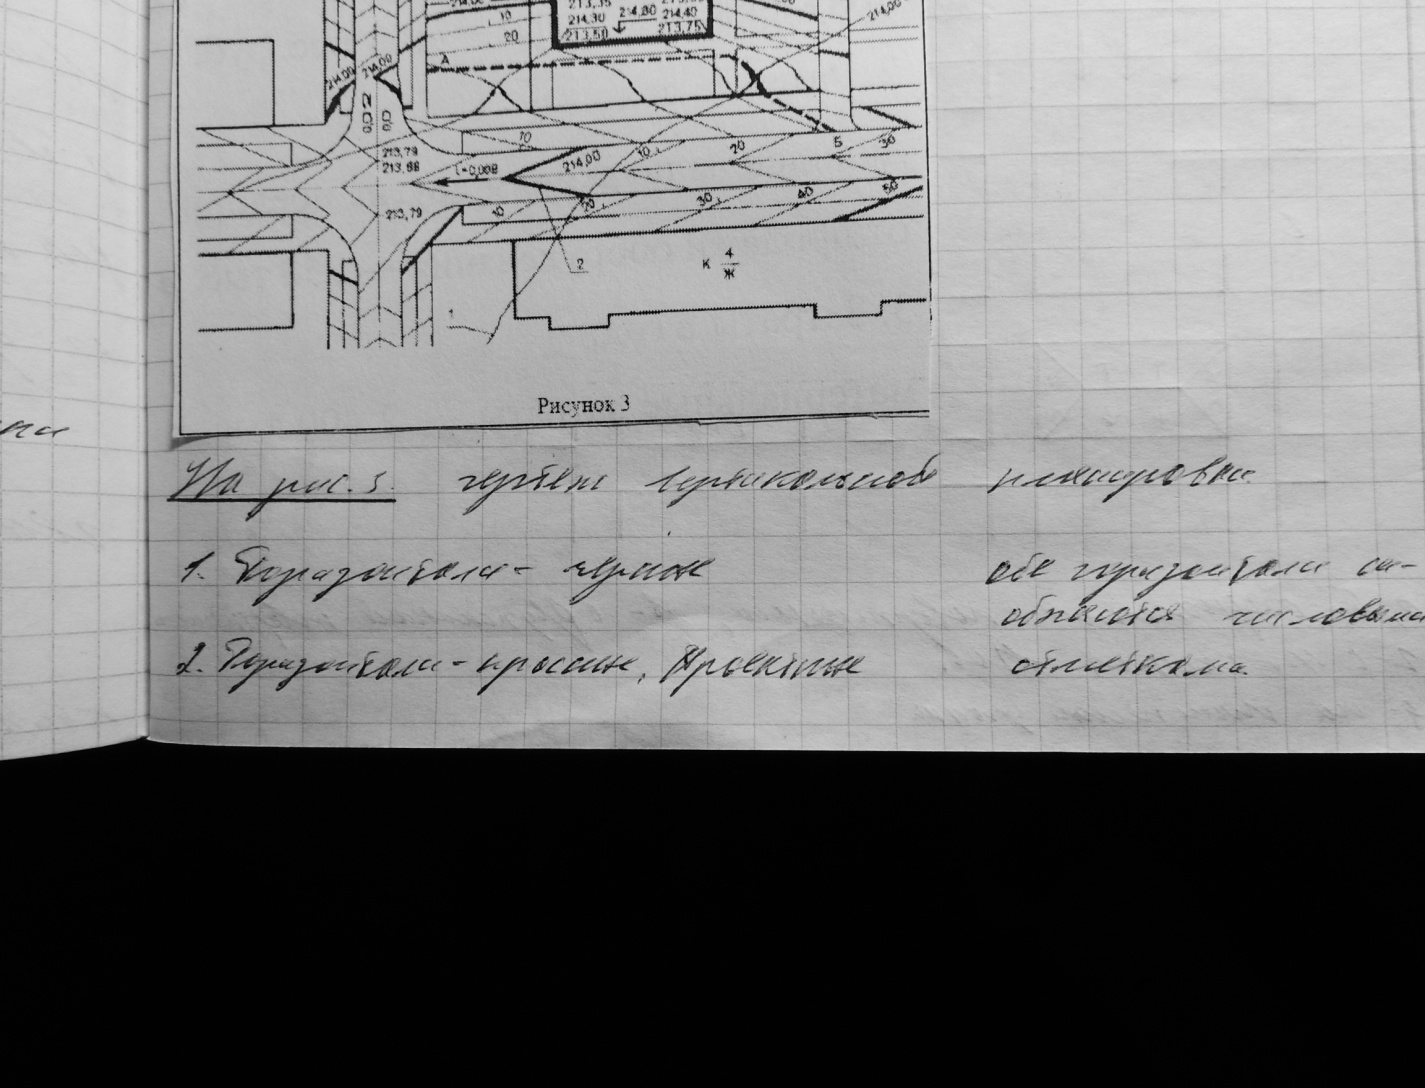 214,00
10
20
213,35
214,30
213,50
214,80
214,40
213,75
214,00
А
214,00
214,00
0,02
213,79
213,88
i=0,008
10
214,00
10
20
5
30
213,79
10
20
30
40
50
2
К 4/Ж
1
Рисунок 3
На рис. 3. чертеж вертикальной планировки
1. Горизонтали - черные
обе горизонтали сн-
абжаются числовыми
2. Горизонтали - красные, Проектные
отметками.